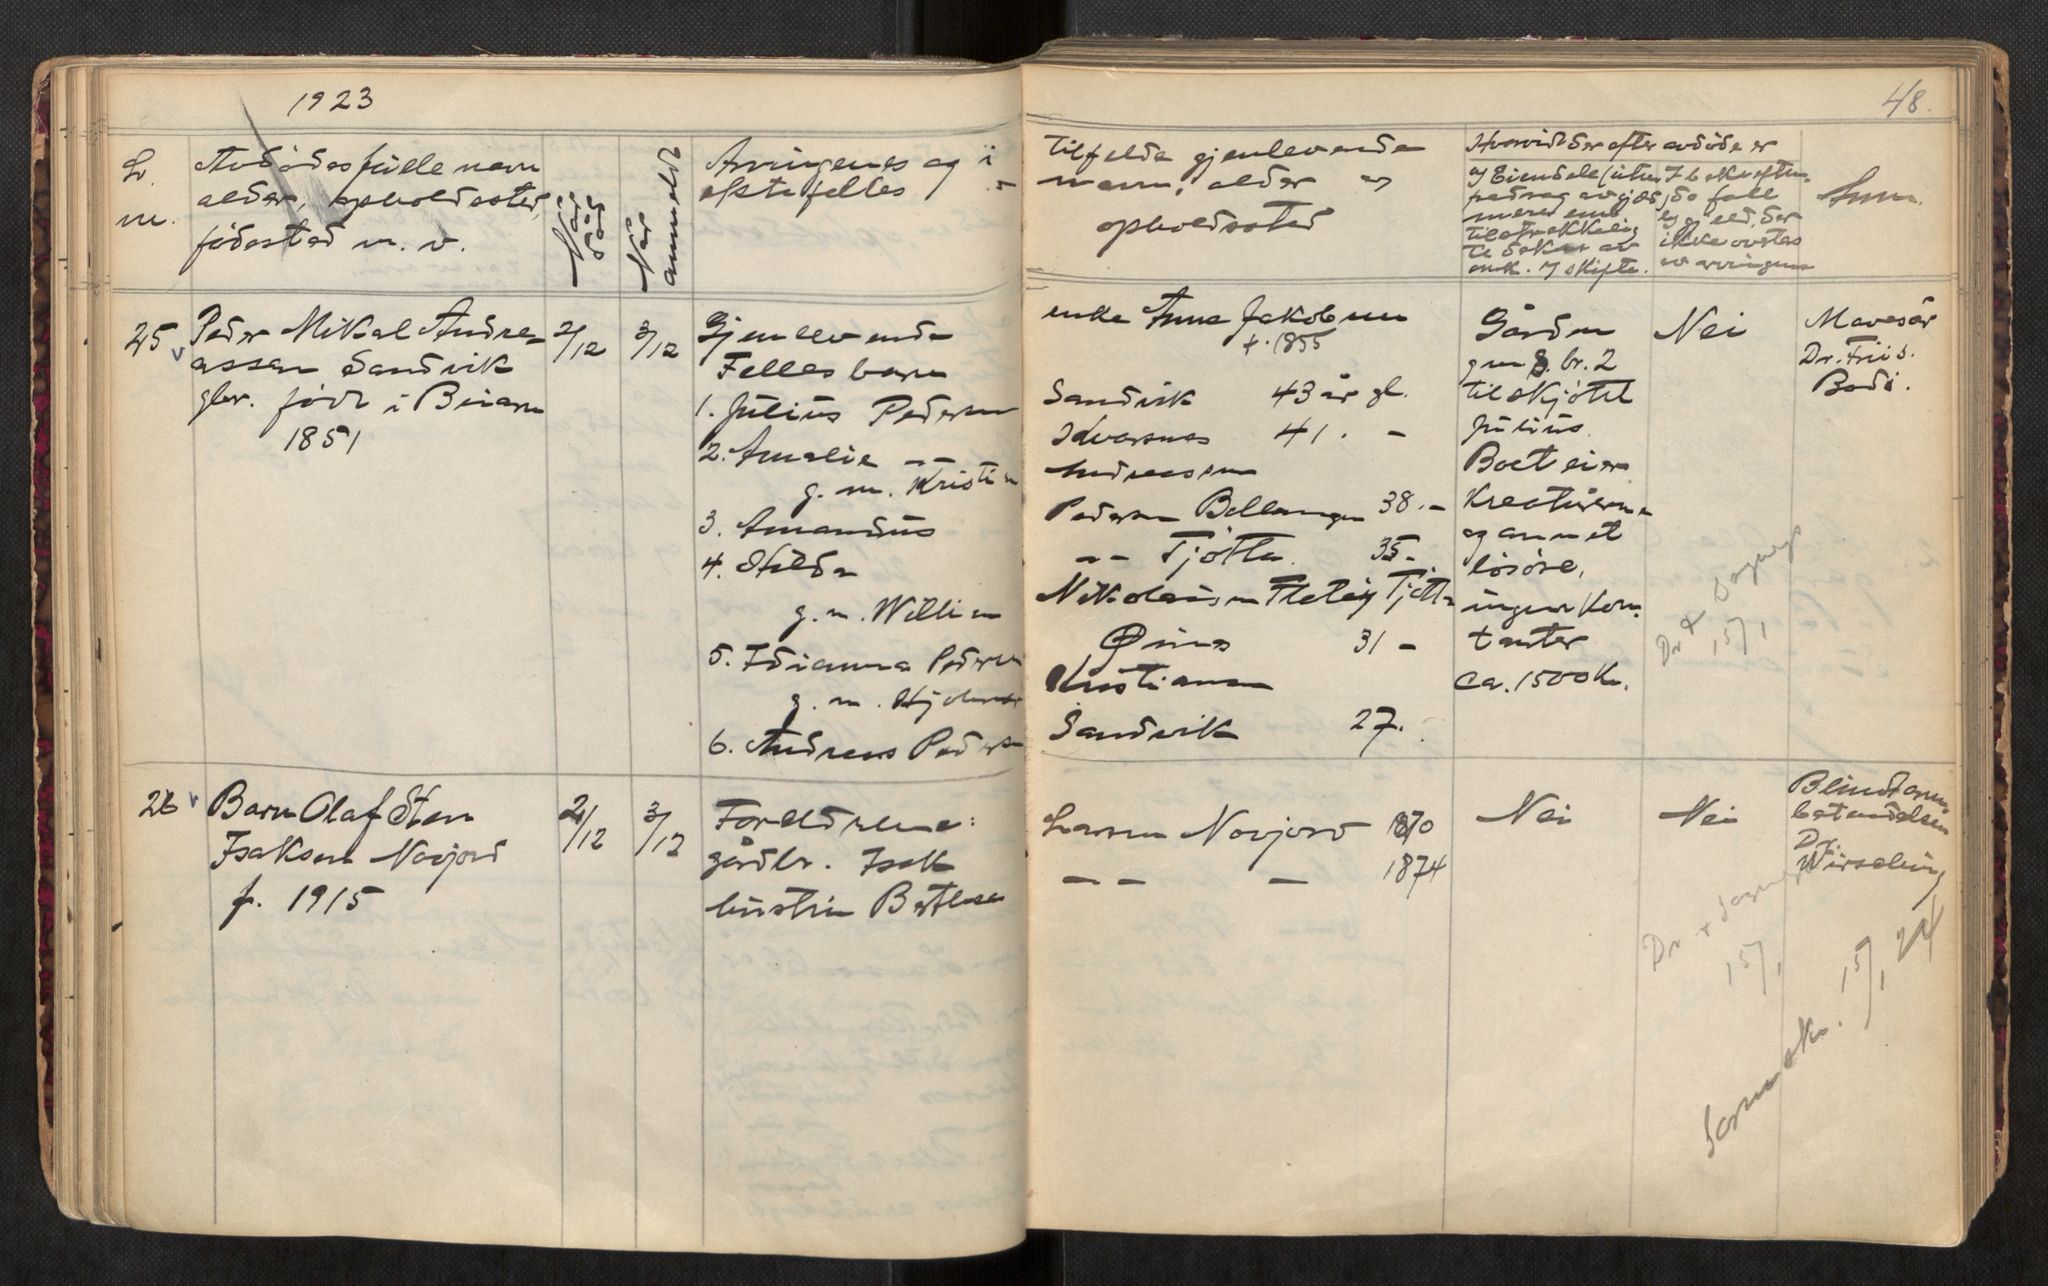 1923
48.
L.
nr.
Avdødes fulle navn
alder, opholdssted,
fødested m. v.
Når
død
Når
anmeldt
Arvingenes og i
efterfelles
tilfelde gjenlevendes
navn, alder og
opholdssted
Hvorvidt der efter avdøde er
Anm.
25
Peder Mikal Andre-
assen Sandvik
gbr. født i Beiarn
1851
2/12
3/12
Gjenlevende
Felles barn
1. Julius Pedersen
2. Amalie —
g. m. Kristian
3. Amandus
4. Hilda
g. m. William
5. Idianna Pedersen
g. m. Hjalmar
6. Andreas Pedersen
enke Anna Jakobsen
f. 1855
Sandvik 43 år gl.
41. —
Andreassen
Pedersen 38. —
— Tjøtta 35 —
Nikolaisen Tjøtta
31 —
Kristiansen
Sandvik 27.
Gården
gnr 8. br. 2
tilskjøtet
Julius.
Boet eier
Kreaturene
og annet
løsøre,
ingen Kon-
tanter
ca. 1500 Kr.
Nei
Mavesår
Dr. Friis.
Bodø.
15/1
26
Barn Olaf Sten
Isaksen Novjord
f. 1915
2/12
3/12
Foreldrene:
gårdbr. Isak
hustru
Larsen Novjord 1870
— — — 1874
Nei
Nei
Blindtarm-
betendelse
Dr.
15/1
15/1 24